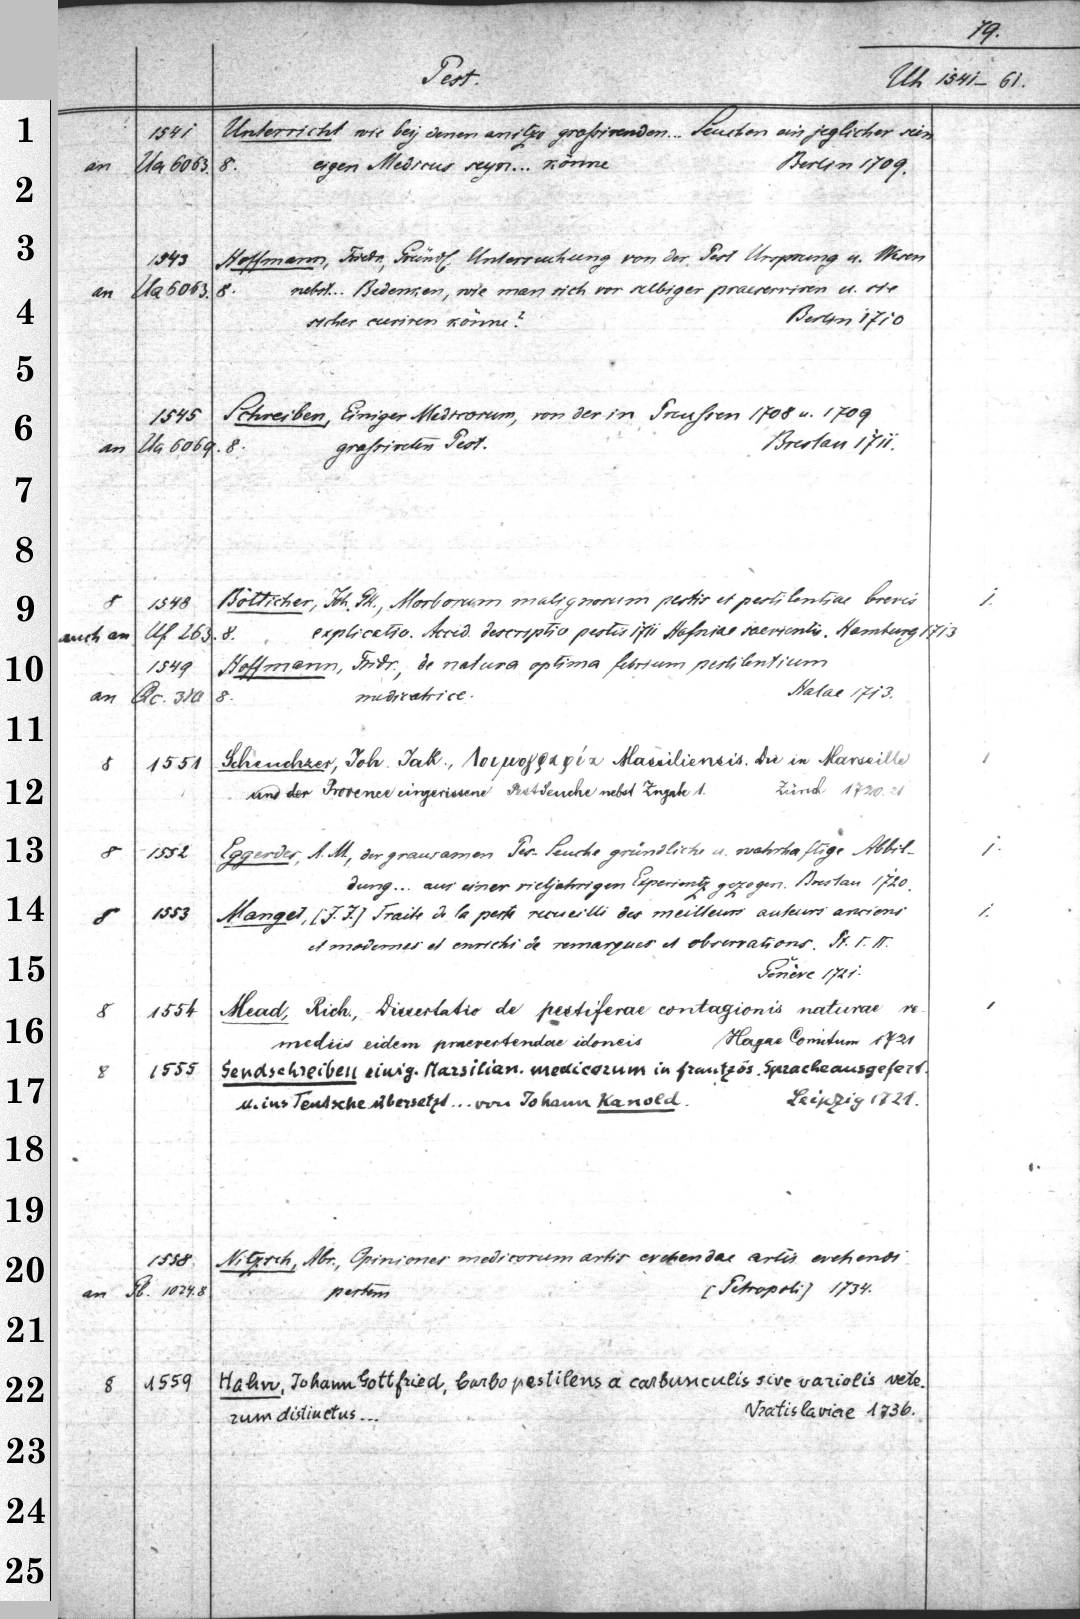 79.
Pest. Uh 1541–61.
1 1541 Unterricht wie beij denen anitzo graßirenden... Seuchen ein jeglicher sein
an Ua 6063. 8. eigen Medicus seyn... könne Berlin 1709.
2
3 1543 Hoffmann, Fridr., Gründl. Untersuchung von der Pest Ursprung u. Wesen
an Ua 6063. 8. nebst... Bedenken, wie man sich vor selbiger praeserviren u. sie
4 sicher curiren könne? Berlin 1710
5
6 1545 Schreiben, Einiger Medicorum, von der in Preußen 1708 u. 1709
an Ua 6069. 8. graßireten Pest. Breslau 1711.
7
8
9 8 1548 Bötticher, Joh. Gk., Morborum malignorum pestis et pestilentiae brevis 1.
auch an Uf 263. 8. explicatio. Acced. descriptio pestis 1711 Hafniae saevientis. Hamburg 1713
10 1549 Hoffmann, Fridr., de natura optima febrium pestilentium
an 310 8. medicatrice. Halae 1713.
11
8 1551 Scheuchzer, Joh. Jak., Λοιμογραφία Massiliensis. Die in Marseille 1
12 und der Provence eingerissene Pest Seuche nebst Zugabe 1. Zürich 1720.21
13 8 1552 Eggerdes, A. M., der grausamen Pes- Seuche gründliche u. wahrhaftige Abbil- 1.
dung... aus einer vieljahrigen Experientz gezogen. Breslau 1720.
14 8 1553 Manget, [J. J.] Traité de la peste recueilli des meilleurs auteurs anciens 1.
et modernes et enrichi de remarques et observations. Pt. I. II.
15 Genève 1721.
8 1554 Mead, Rich., Dissertatio de pestiferae contagionis naturae re- 1
16 mediis eidem praevertendae idoneis Hagae Comitum 1721
8 1555 Sendschreiben einig. Marsilian. medicorum in frantzös. Sprache ausgefert.
17 u. ins Teutsche übersetzt... von Johann Kanold. Leipzig 1721.
18
19
20 1558. Nitzsch, Abr., Opiniones medicorum artis evehendae artis evehendi
an 1024.8 pestem [Petropoli] 1734.
21
22 8 1559 Hahn, Johann Gottfried, Carbo pestilens a carbunculis sive variolis vete-
rum distinctus... Vratislaviae 1736.
23
24
25